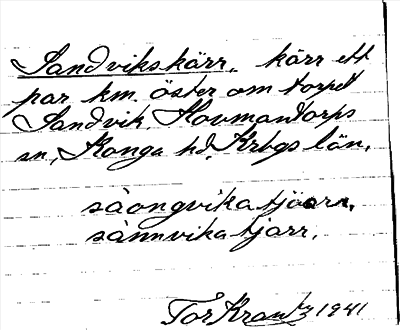 Sandvikskärr, kärr ett
par km. öster om torpet
Sandvik, Hovmantorps
sn, Konga hd, Krbgs län.
sàongvikatjöarr,
sànnvikatjärr.
Tor Krantz 1941